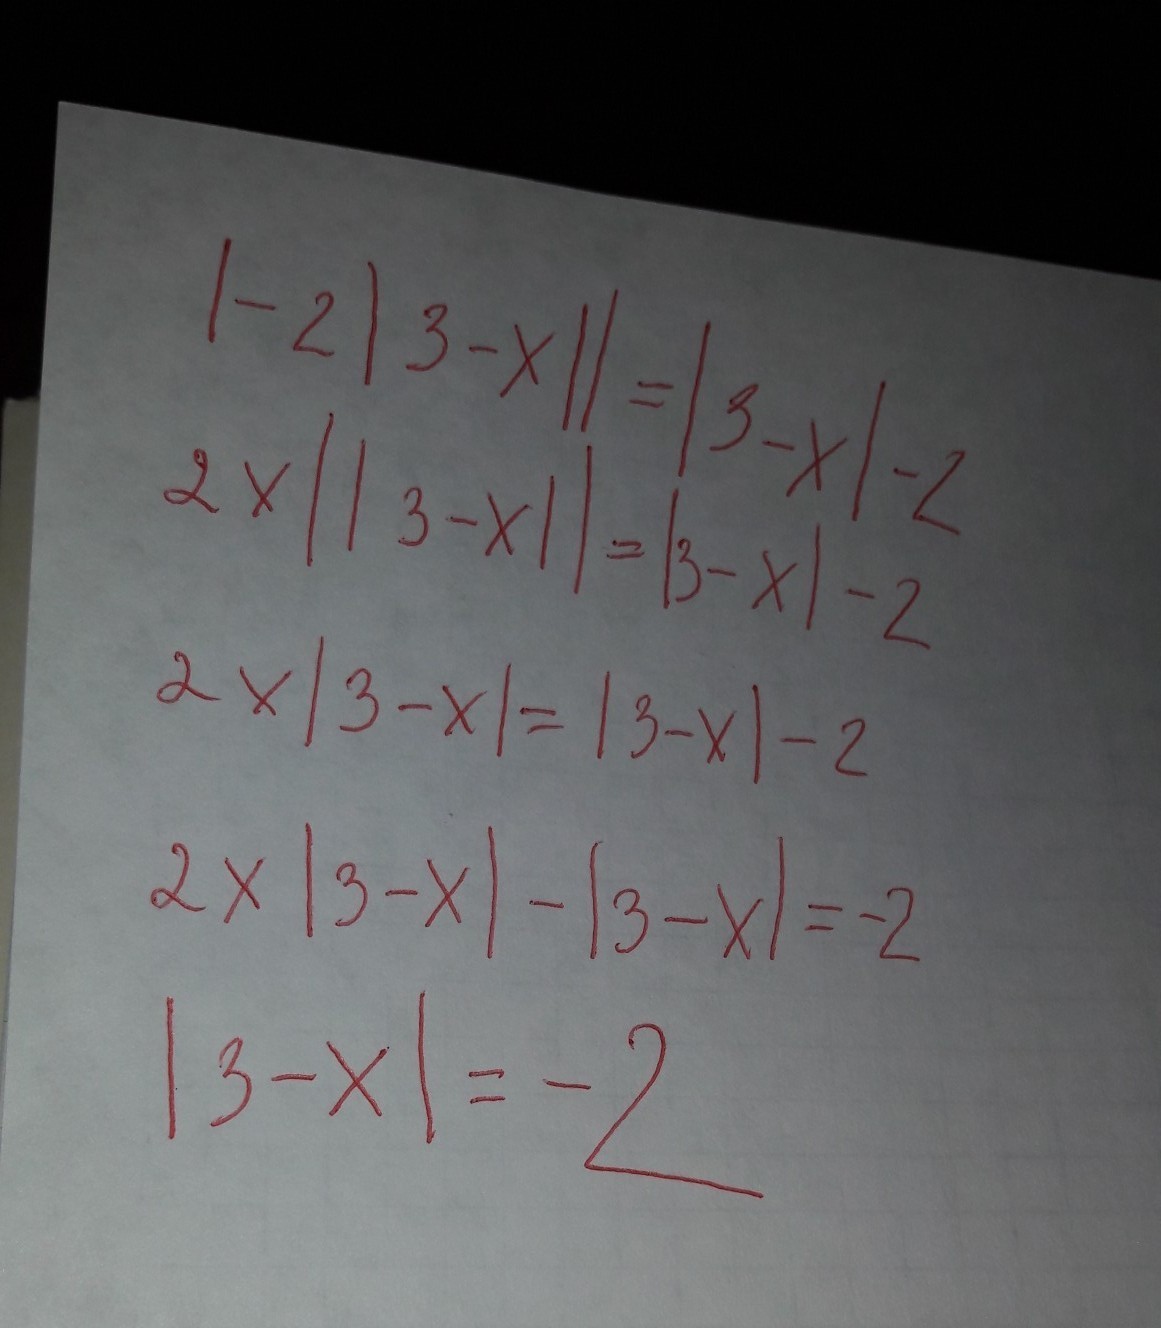 |-2|3-x|| = |3-x|-2
2x||3-x|| = |3-x|-2
2x|3-x| = |3-x|-2
2x|3-x|-|3-x| = -2
|3-x| = -2